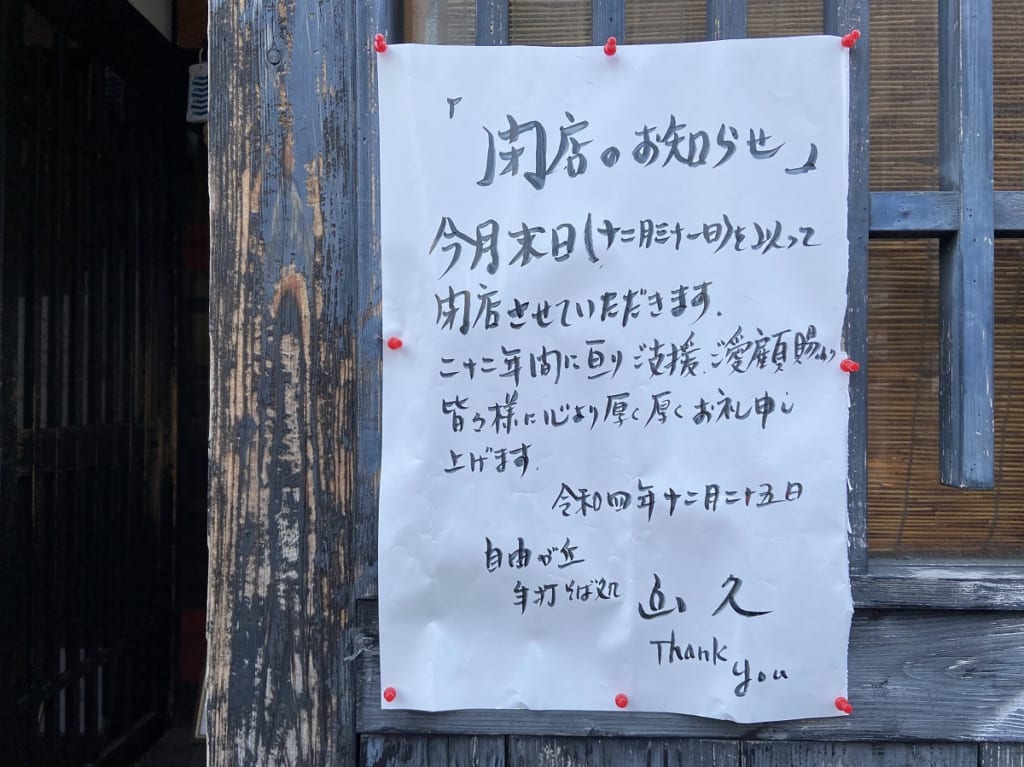 「閉店のお知らせ」
今月末日(十二月三十一日)を以って
閉店させていただきます.
二十二年間に亘りご支援、ご愛顧賜わり
皆々様に心より厚く厚くお礼申し
上げます.
令和四年十二月二十五日
自由が丘
手打そば処
山久
Thank
you